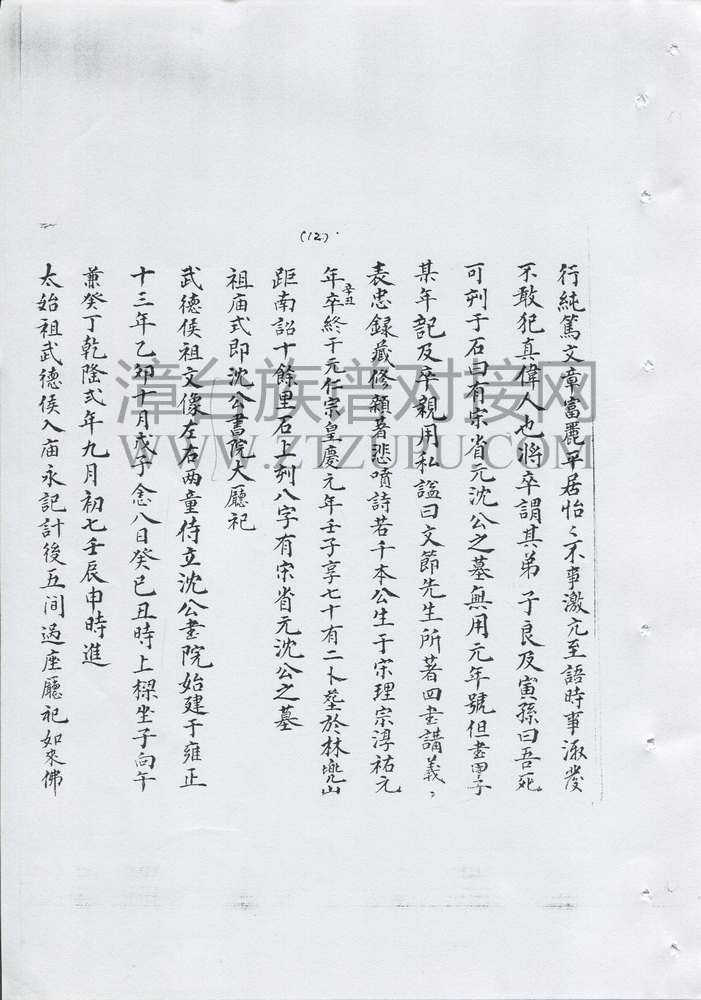 (12)
行純篤文章富麗平居怡々不事激亢至語時事激發
不敢犯真偉人也將卒謂其弟子良及寅孫曰吾死
可刋于石曰有宋省元沈公之墓無用元年號但書甲子
某年記及卒親用私謚曰文節先生所著四書講義、
表忠錄藏修額著悲噴詩若千本公生于宋理宗淳祐元
年辛丑卒終于元仁宗皇慶元年壬子享七十有二卜塟於林堯山
距南詔十餘里石上刋八字有宋省元沈公之墓
祖庙式即沈公書院大廳祀
武德侯祖文像左右两童侍立沈公書院始建于雍正
十三年乙卯十月戊子念八日癸巳丑時上樑坐子向午
兼癸丁乾隆弍年九月初七壬辰申時進
太始祖武德侯入庙永記計後五间過座廳祀如來佛
漳台族谱对接网
WWW.ZTZUPU.COM